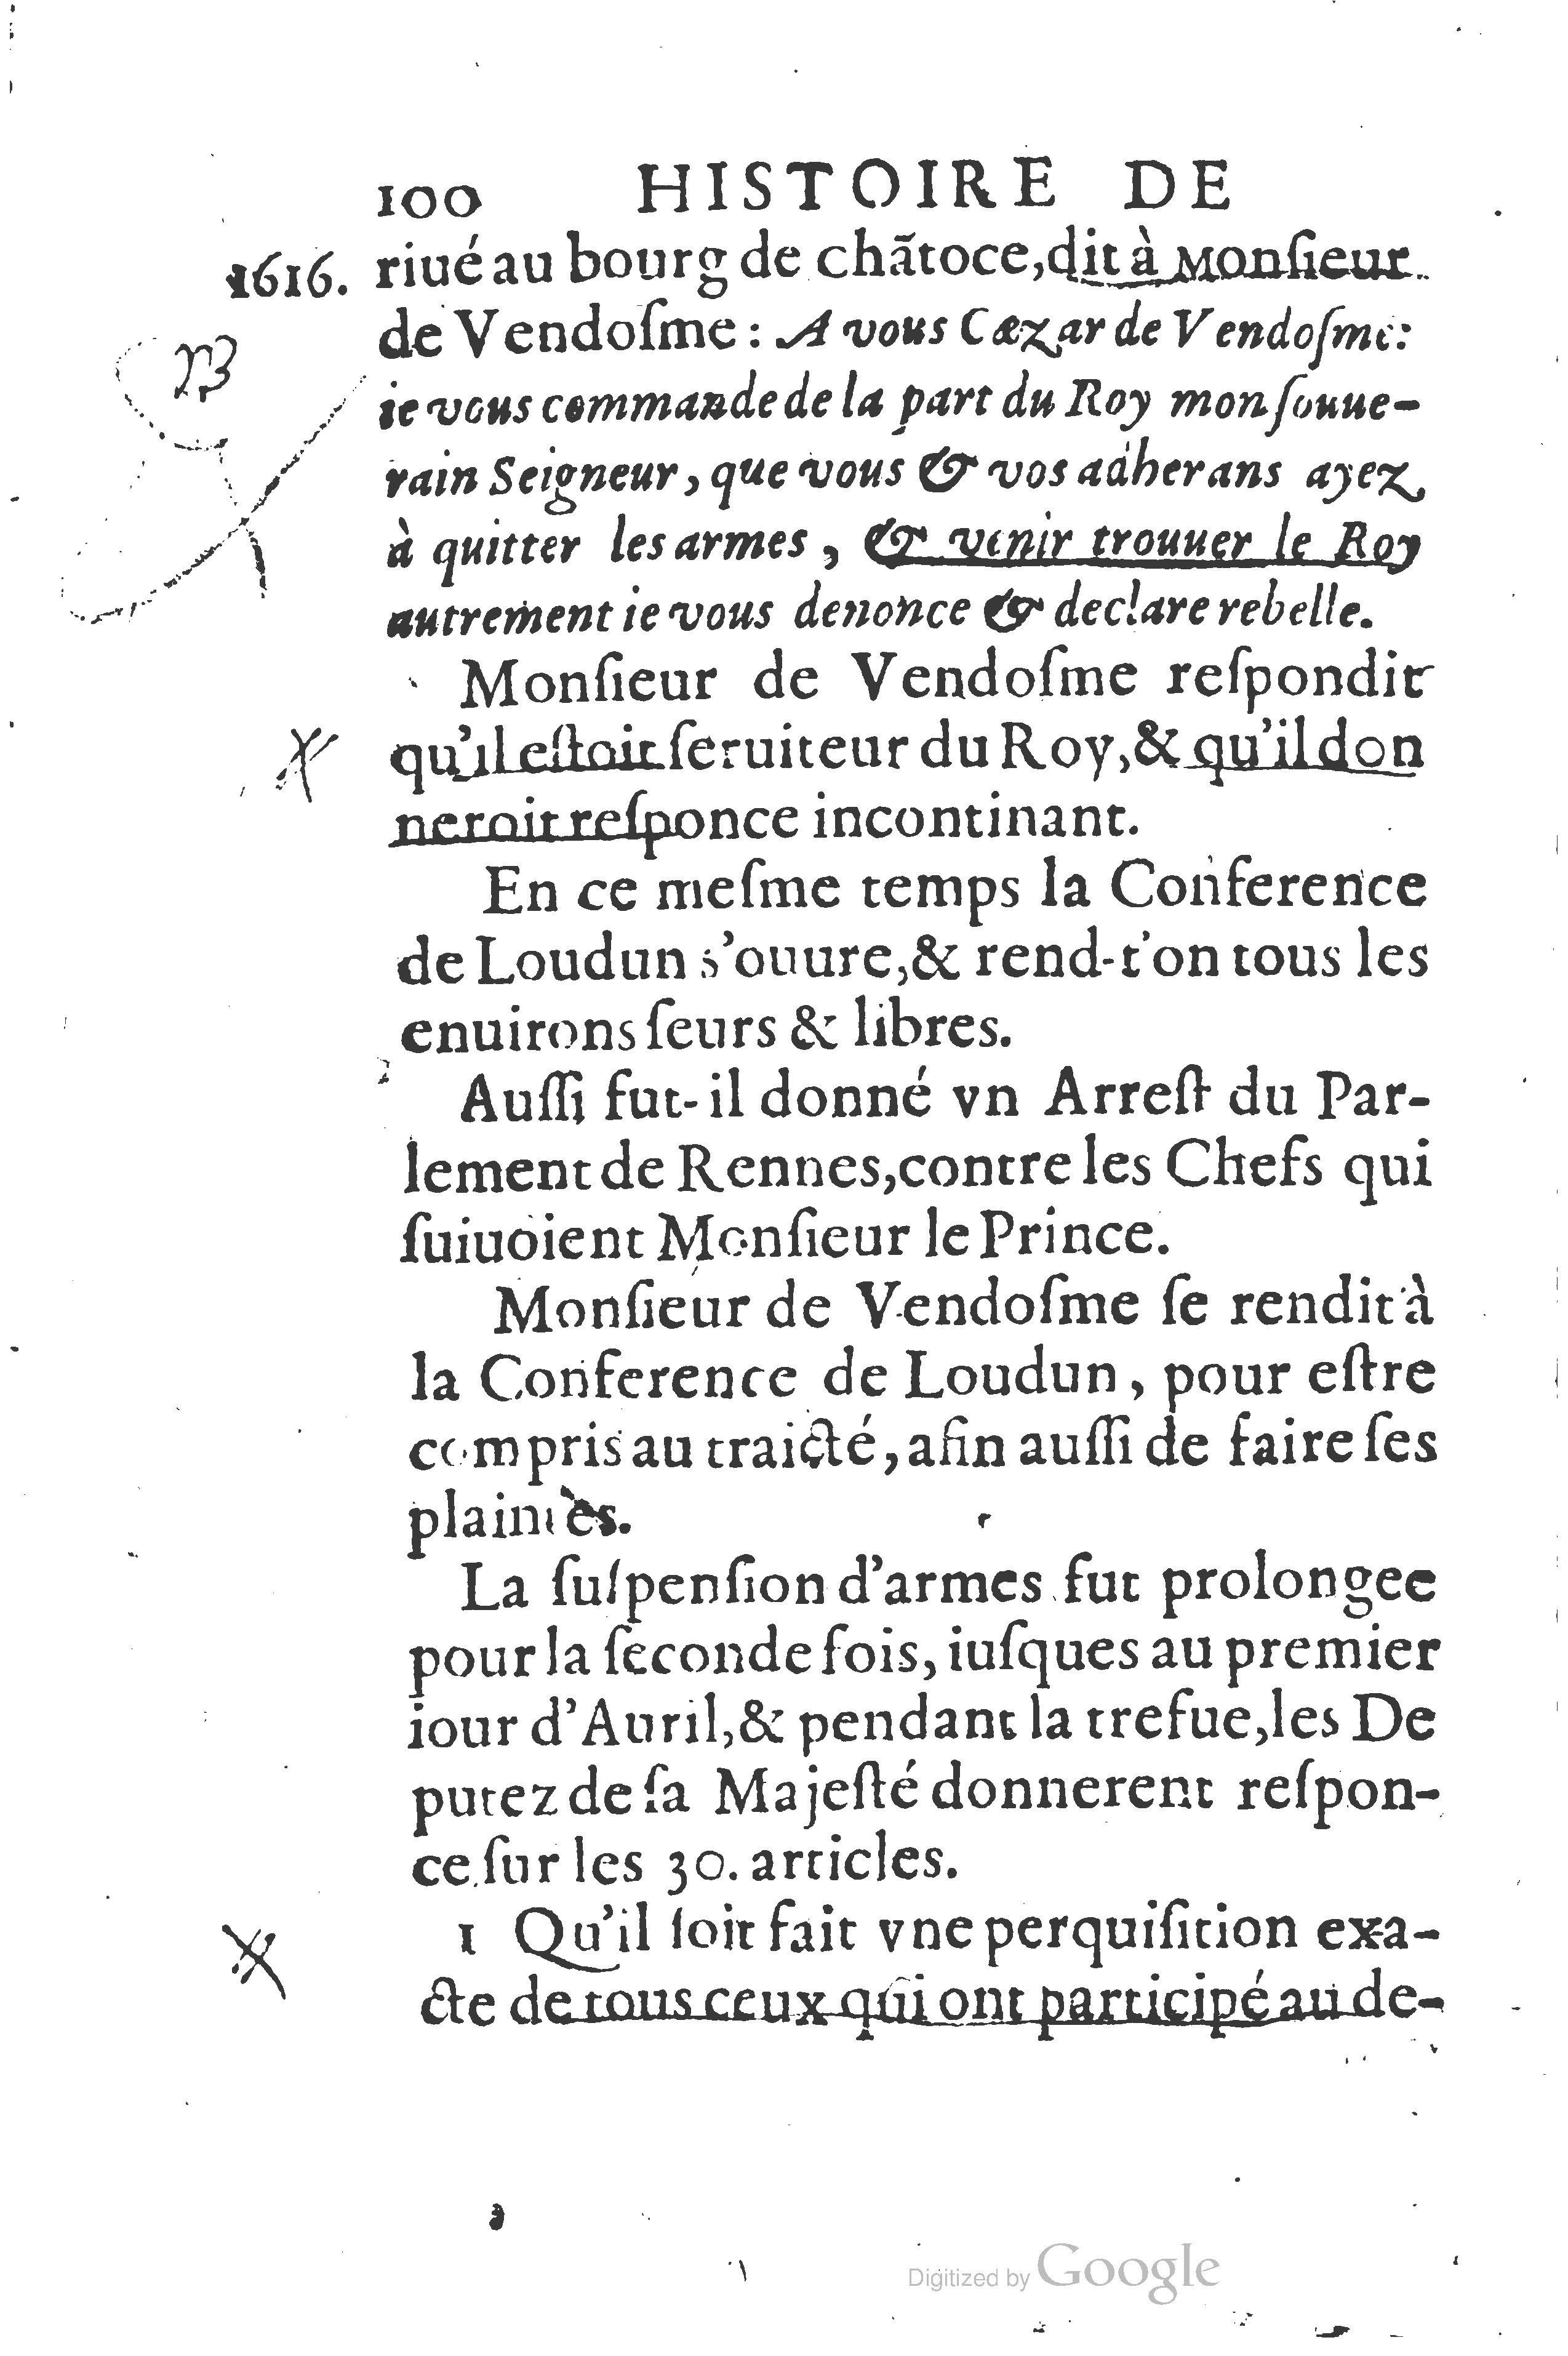 100 HISTOIRE DE
1616. riué au bourg de chãtoce, dit à Monſieur
de Vendoſme : A vous Cæzar de Vendoſme:
ie vous commande de la part du Roy mon ſouue-
rain Seigneur, que vous & vos adherans ayez
à quitter les armes, & venir trouuer le Roy
autrement ie vous denonce & declare rebelle.
Monſieur de Vendoſme reſpondit
qu'il eſtoit ſeruiteur du Roy, & qu'il don
neroit reſponce incontinant.
En ce meſme temps la Conference
de Loudun s'ouure, & rend-t'on tous les
enuirons ſeurs & libres.
Auſſi fut-il donné vn Arreſt du Par-
lement de Rennes, contre les Chefs qui
ſuiuoient Monſieur le Prince.
Monſieur de Vendoſme ſe rendit à
la Conference de Loudun, pour eſtre
compris au traicté, afin auſſi de faire ſes
plaintes.
La ſuſpenſion d'armes fut prolongee
pour la ſeconde fois, iuſques au premier
iour d'Auril, & pendant la trefue, les De
putez de ſa Majeſté donnerent reſpon-
ce ſur les 30. articles.
1 Qu'il ſoit fait vne perquiſition exa-
cte de tous ceux qui ont participé au de-
Digitized by Google